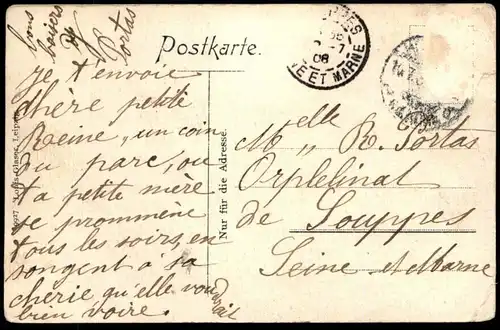 Bons
baisers
Portas
Postkarte.
SOUPPES
-7
08
SEINE ET MARNE
Je t'envoie
chère petite
Reine, un coin
du parc, ou
ta petite mère
se promène
tous les soirs, en
songent à sa
chérie qu'elle voudrait
bien voire.
Louis Glaser, Leipzig
Nur für die Adresse.
Melle R. Portas
Orphelinat
de Souppes
Seine et Marne